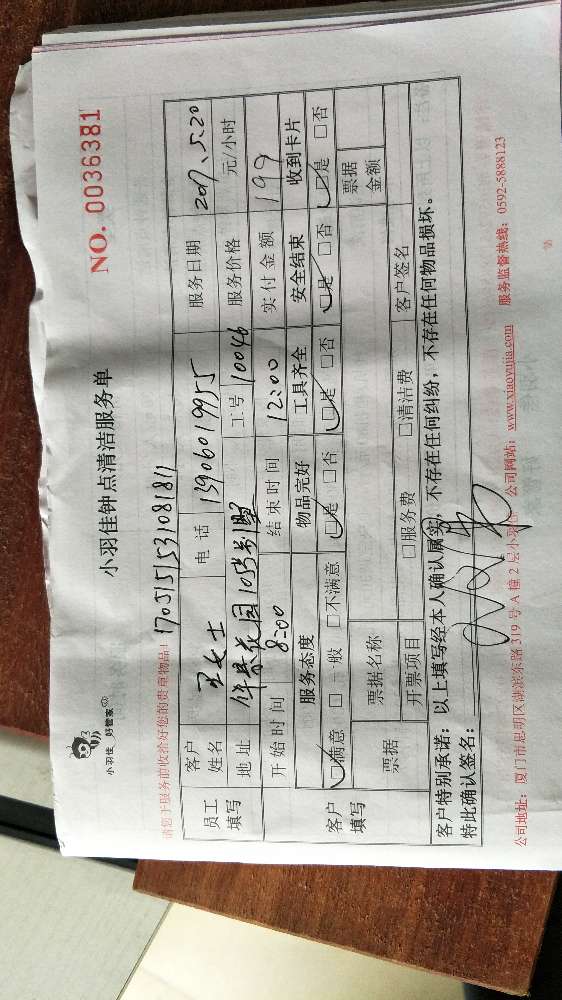 小羽佳 好管家
小羽佳钟点清洁服务单
NO. 0036381
请您于服务前收拾好您的贵重物品!
1705151531081811
员工填写
客户姓名 王女士 电话 13906019955 服务日期 2017.5.20
地址 华景花园105别墅 工号 10046 服务价格 元/小时
开始时间 8:00 结束时间 12:00 实付金额 199
客户填写
服务态度 物品完好 工具齐全 安全结束 收到卡片
☑满意 □一般 □不满意 ☑是 □否 ☑是 □否 ☑是 □否 ☑是 □否
票据 票据名称 票据金额
开票项目 □服务费 □清洁费 客户签名
客户特别承诺: 以上填写经本人确认属实, 不存在任何纠纷, 不存在任何物品损坏。
特此确认签名:
公司地址: 厦门市思明区湖滨东路 319 号 A 幢 2 层小羽佳 公司网站: www.xiaoyujia.com 服务监督热线: 0592-5888123